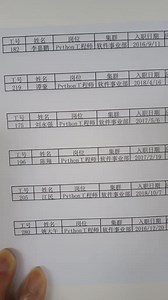 工号 姓名 岗位 集群 入职日期
182 李嘉鹏 Python工程师 软件事业部 2016/9/11
工号 姓名 岗位 集群 入职日期
219 谭豪 Python工程师 软件事业部 2018/4/16
工号 姓名 岗位 集群 入职日期
175 Python工程师 软件事业部 2017/5/6
工号 姓名 岗位 集群 入职日期
196 Python工程师 软件事业部 2017/2/19
工号 姓名 岗位 集群 入职日期
205 Python工程师 软件事业部 2018/10/7
工号 姓名 岗位 集群 入职日期
Python工程师 软件事业部 2016/12/20